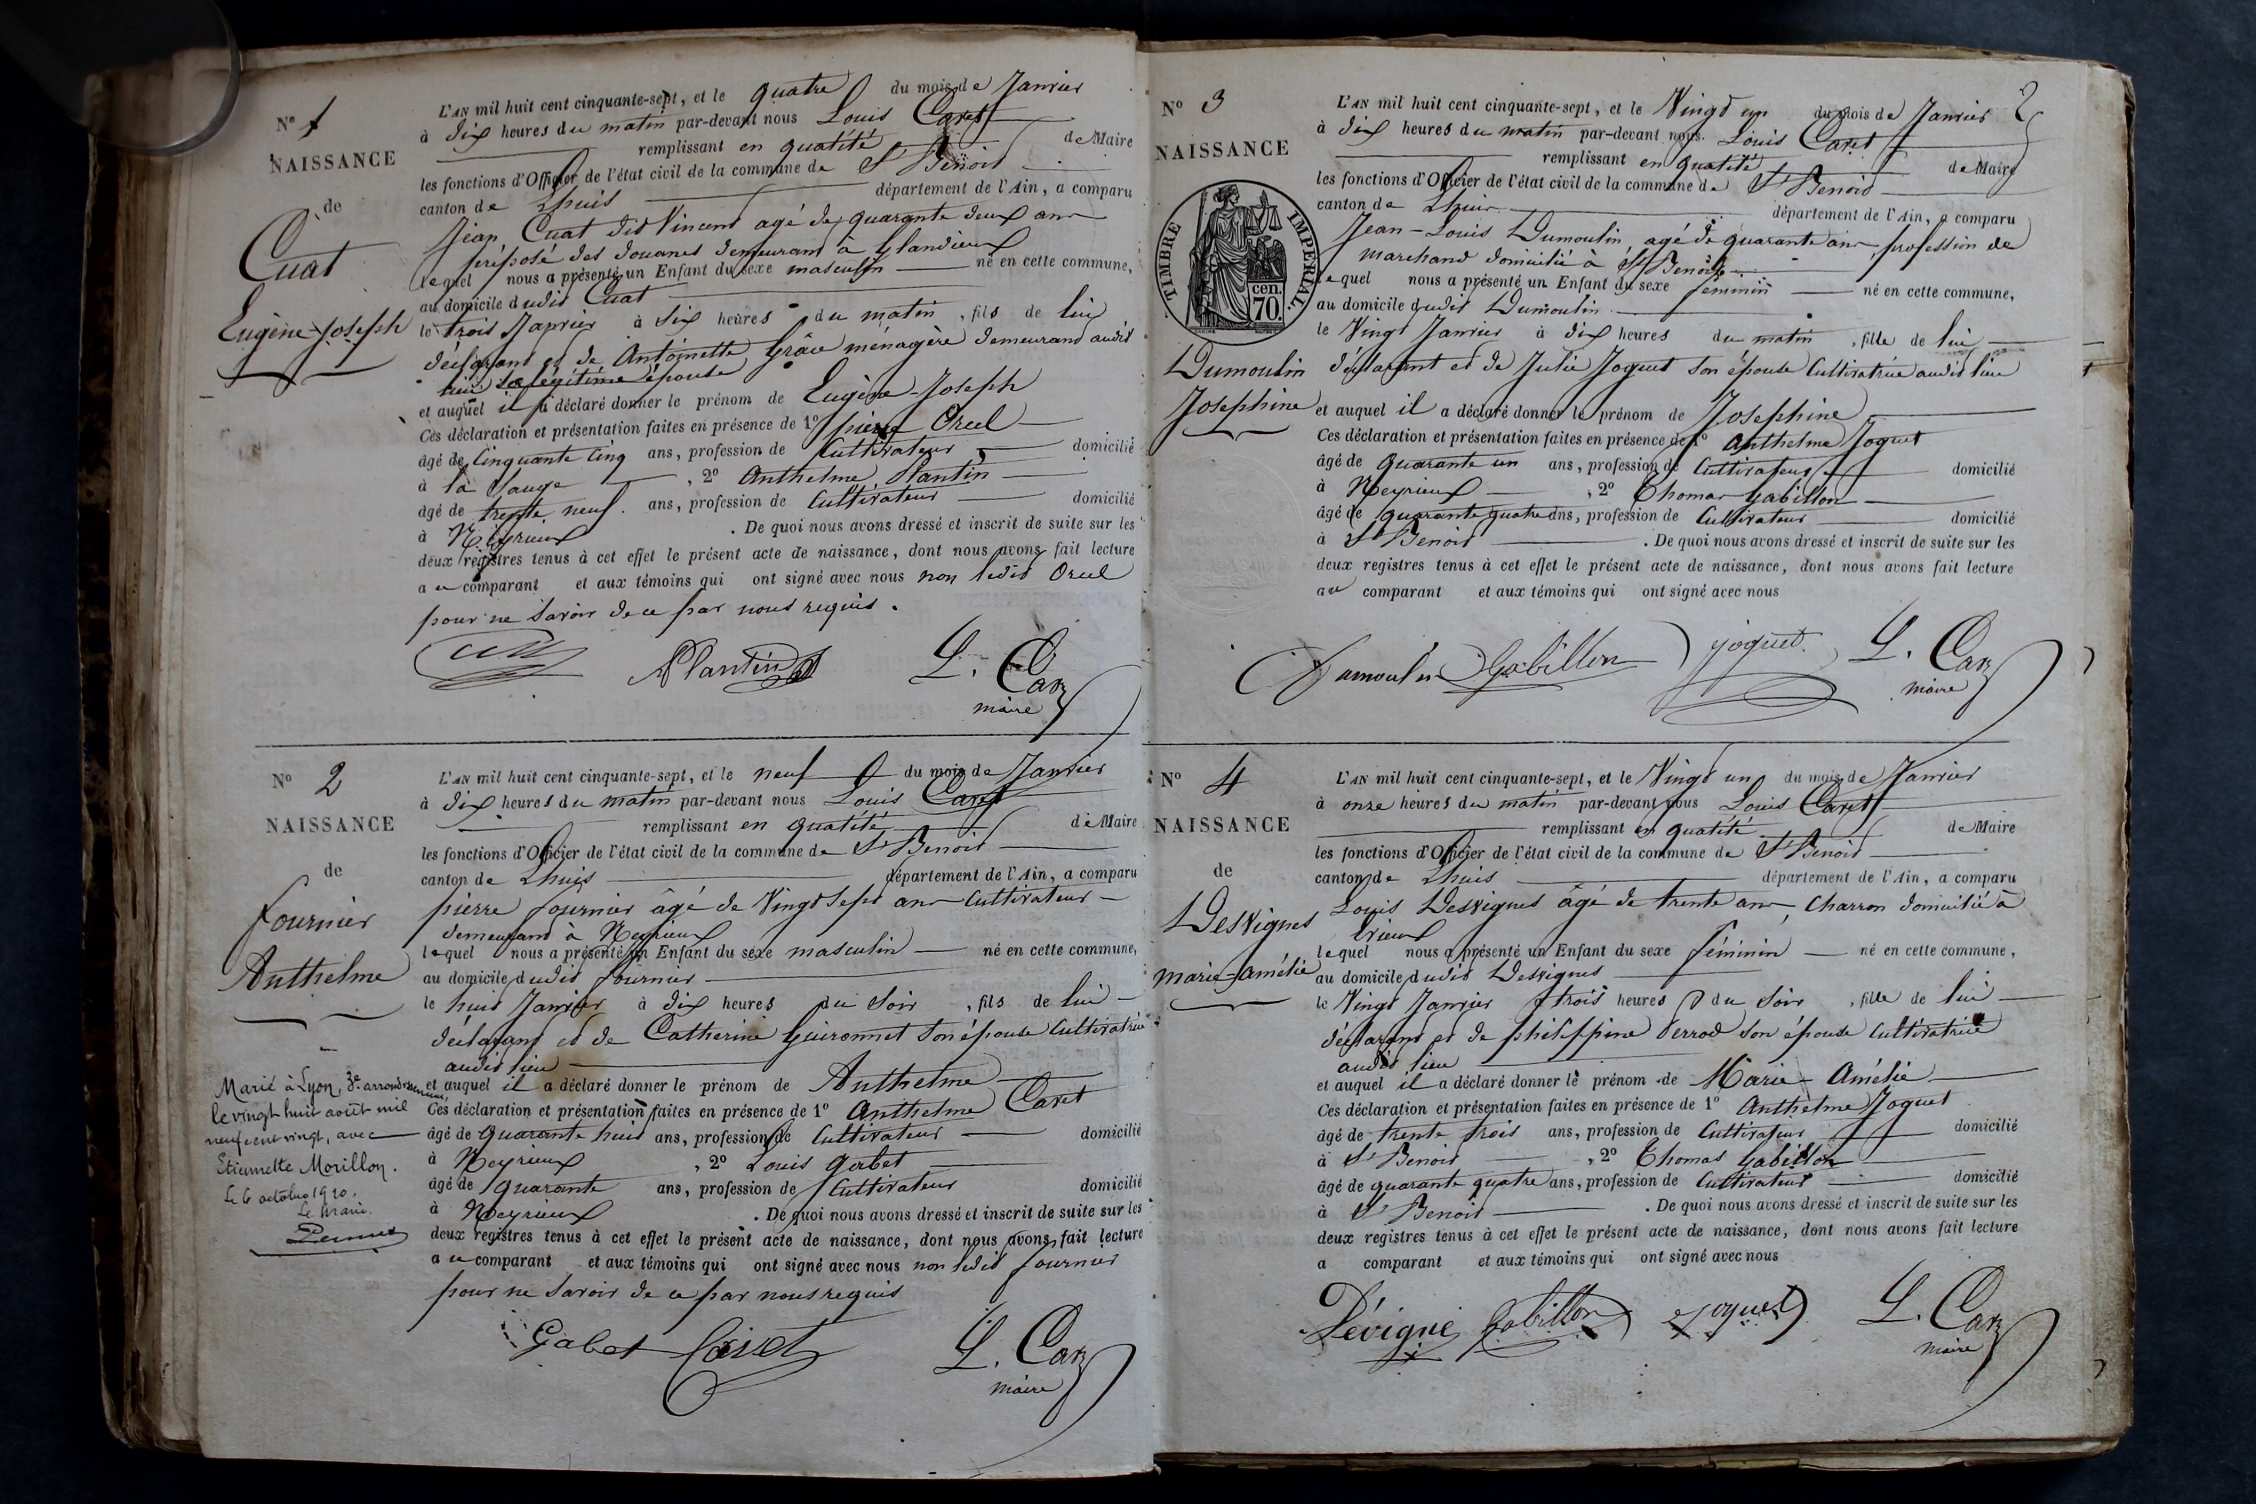 N° 1
NAISSANCE
de
Cuat
Eugène-Joseph
L'AN mil huit cent cinquante-sept, et le quatre du mois de Janvier
à dix heures du matin par-devant nous Louis Caret
remplissant en qualité de Maire
les fonctions d'Officier de l'état civil de la commune de St Benoit
canton de Lhuis département de l'Ain, a comparu
Jean Cuat dit Vincent agé de quarante deux ans
préposé des douanes demeurant à Glandieux
lequel nous a présenté un Enfant du sexe masculin né en cette commune,
au domicile dudit Cuat
le trois Janvier à dix heures du matin, fils de lui
déclarant et de Antoinette Grâce ménagère demeurant audit
lieu sa légitime épouse
et auquel il a déclaré donner le prénom de Eugène-Joseph
Ces déclaration et présentation faites en présence de 1° pierre Orcel
âgé de Cinquante Cinq ans, profession de Cultivateur domicilié
à la Sauge, 2° Anthelme Plantin
âgé de trente neuf ans, profession de Cultivateur domicilié
à Neyrieux. De quoi nous avons dressé et inscrit de suite sur les
deux registres tenus à cet effet le présent acte de naissance, dont nous avons fait lecture
au comparant et aux témoins qui ont signé avec nous non ledit Orcel
pour ne savoir de ce par nous requis.
Plantin
L. Caret
maire
N° 2
NAISSANCE
de
fournier
Anthelme
Marié à Lyon, 3e arrondissement,
le vingt huit août mil
neuf cent vingt, avec
Etiennette Morillon.
Le 6 octobre 1920.
Le Maire.
L'AN mil huit cent cinquante-sept, et le neuf du mois de Janvier
à dix heures du matin par-devant nous Louis Caret
remplissant en qualité de Maire
les fonctions d'Officier de l'état civil de la commune de St Benoit
canton de Lhuis département de l'Ain, a comparu
pierre fournier âgé de Vingt sept ans Cultivateur
demeurant à Neyrieux
lequel nous a présenté un Enfant du sexe masculin né en cette commune,
au domicile dudit fournier
le huit Janvier à dix heures du soir, fils de lui
déclarant et de Catherine Guironnet son épouse Cultivatrice
audit lieu
et auquel il a déclaré donner le prénom de Anthelme
Ces déclaration et présentation faites en présence de 1° Anthelme Caret
âgé de quarante huit ans, profession de Cultivateur domicilié
à Neyrieux, 2° Louis Gabet
âgé de quarante ans, profession de Cultivateur domicilié
à Neyrieux. De quoi nous avons dressé et inscrit de suite sur les
deux registres tenus à cet effet le présent acte de naissance, dont nous avons fait lecture
au comparant et aux témoins qui ont signé avec nous non ledit fournier
pour ne savoir de ce par nous requis
Gabet Caret
L. Caret
maire
2
N° 3
NAISSANCE
TIMBRE IMPERIAL
cen.
70.
Dumoulin
Josephine
L'AN mil huit cent cinquante-sept, et le Vingt un du mois de Janvier
à dix heures du matin par-devant nous Louis Caret
remplissant en qualité de Maire
les fonctions d'Officier de l'état civil de la commune de St Benoit
canton de Lhuis département de l'Ain, a comparu
Jean-Louis Dumoulin, agé de quarante ans, profession de
marchand domicilié à St Benoit
lequel nous a présenté un Enfant du sexe féminin né en cette commune,
au domicile dudit Dumoulin
le Vingt Janvier à dix heures du matin, fille de lui
déclarant et de Julie Joguet son épouse Cultivatrice audit lieu
et auquel il a déclaré donner le prénom de Josephine
Ces déclaration et présentation faites en présence de 1° Anthelme Joguet
âgé de quarante un ans, profession de Cultivateur domicilié
à Neyrieux, 2° Thomas Gabillon
âgé de quarante quatre ans, profession de Cultivateur domicilié
à St Benoit. De quoi nous avons dressé et inscrit de suite sur les
deux registres tenus à cet effet le présent acte de naissance, dont nous avons fait lecture
au comparant et aux témoins qui ont signé avec nous
Dumoulin Gabillon joguet L. Caret
maire
N° 4
NAISSANCE
de
Desvignes
marie-amélie
L'AN mil huit cent cinquante-sept, et le Vingt un du mois de Janvier
à onze heures du matin par-devant nous Louis Caret
remplissant en qualité de Maire
les fonctions d'Officier de l'état civil de la commune de St Benoit
canton de Lhuis département de l'Ain, a comparu
Louis Desvignes âgé de trente ans, Charron domicilié à
lequel nous a présenté un Enfant du sexe féminin né en cette commune,
au domicile dudit Desvignes
le Vingt Janvier à trois heures du soir, fille de lui
déclarant et de philippine Perrod son épouse Cultivatrice
audit lieu
et auquel il a déclaré donner le prénom de Marie-Amélie
Ces déclaration et présentation faites en présence de 1° Anthelme Joguet
âgé de trente trois ans, profession de Cultivateur domicilié
à St Benoit, 2° Thomas Gabillon
âgé de quarante quatre ans, profession de Cultivateur domicilié
à St Benoit. De quoi nous avons dressé et inscrit de suite sur les
deux registres tenus à cet effet le présent acte de naissance, dont nous avons fait lecture
a comparant et aux témoins qui ont signé avec nous
Dévigne Gabillon joguet L. Caret
maire